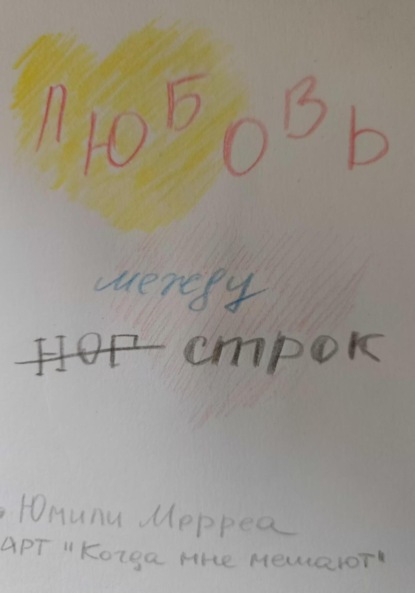 ЛЮБОВЬ
между
НОГ строк
Юмили Мерреа
АРТ "Когда мне мешают"